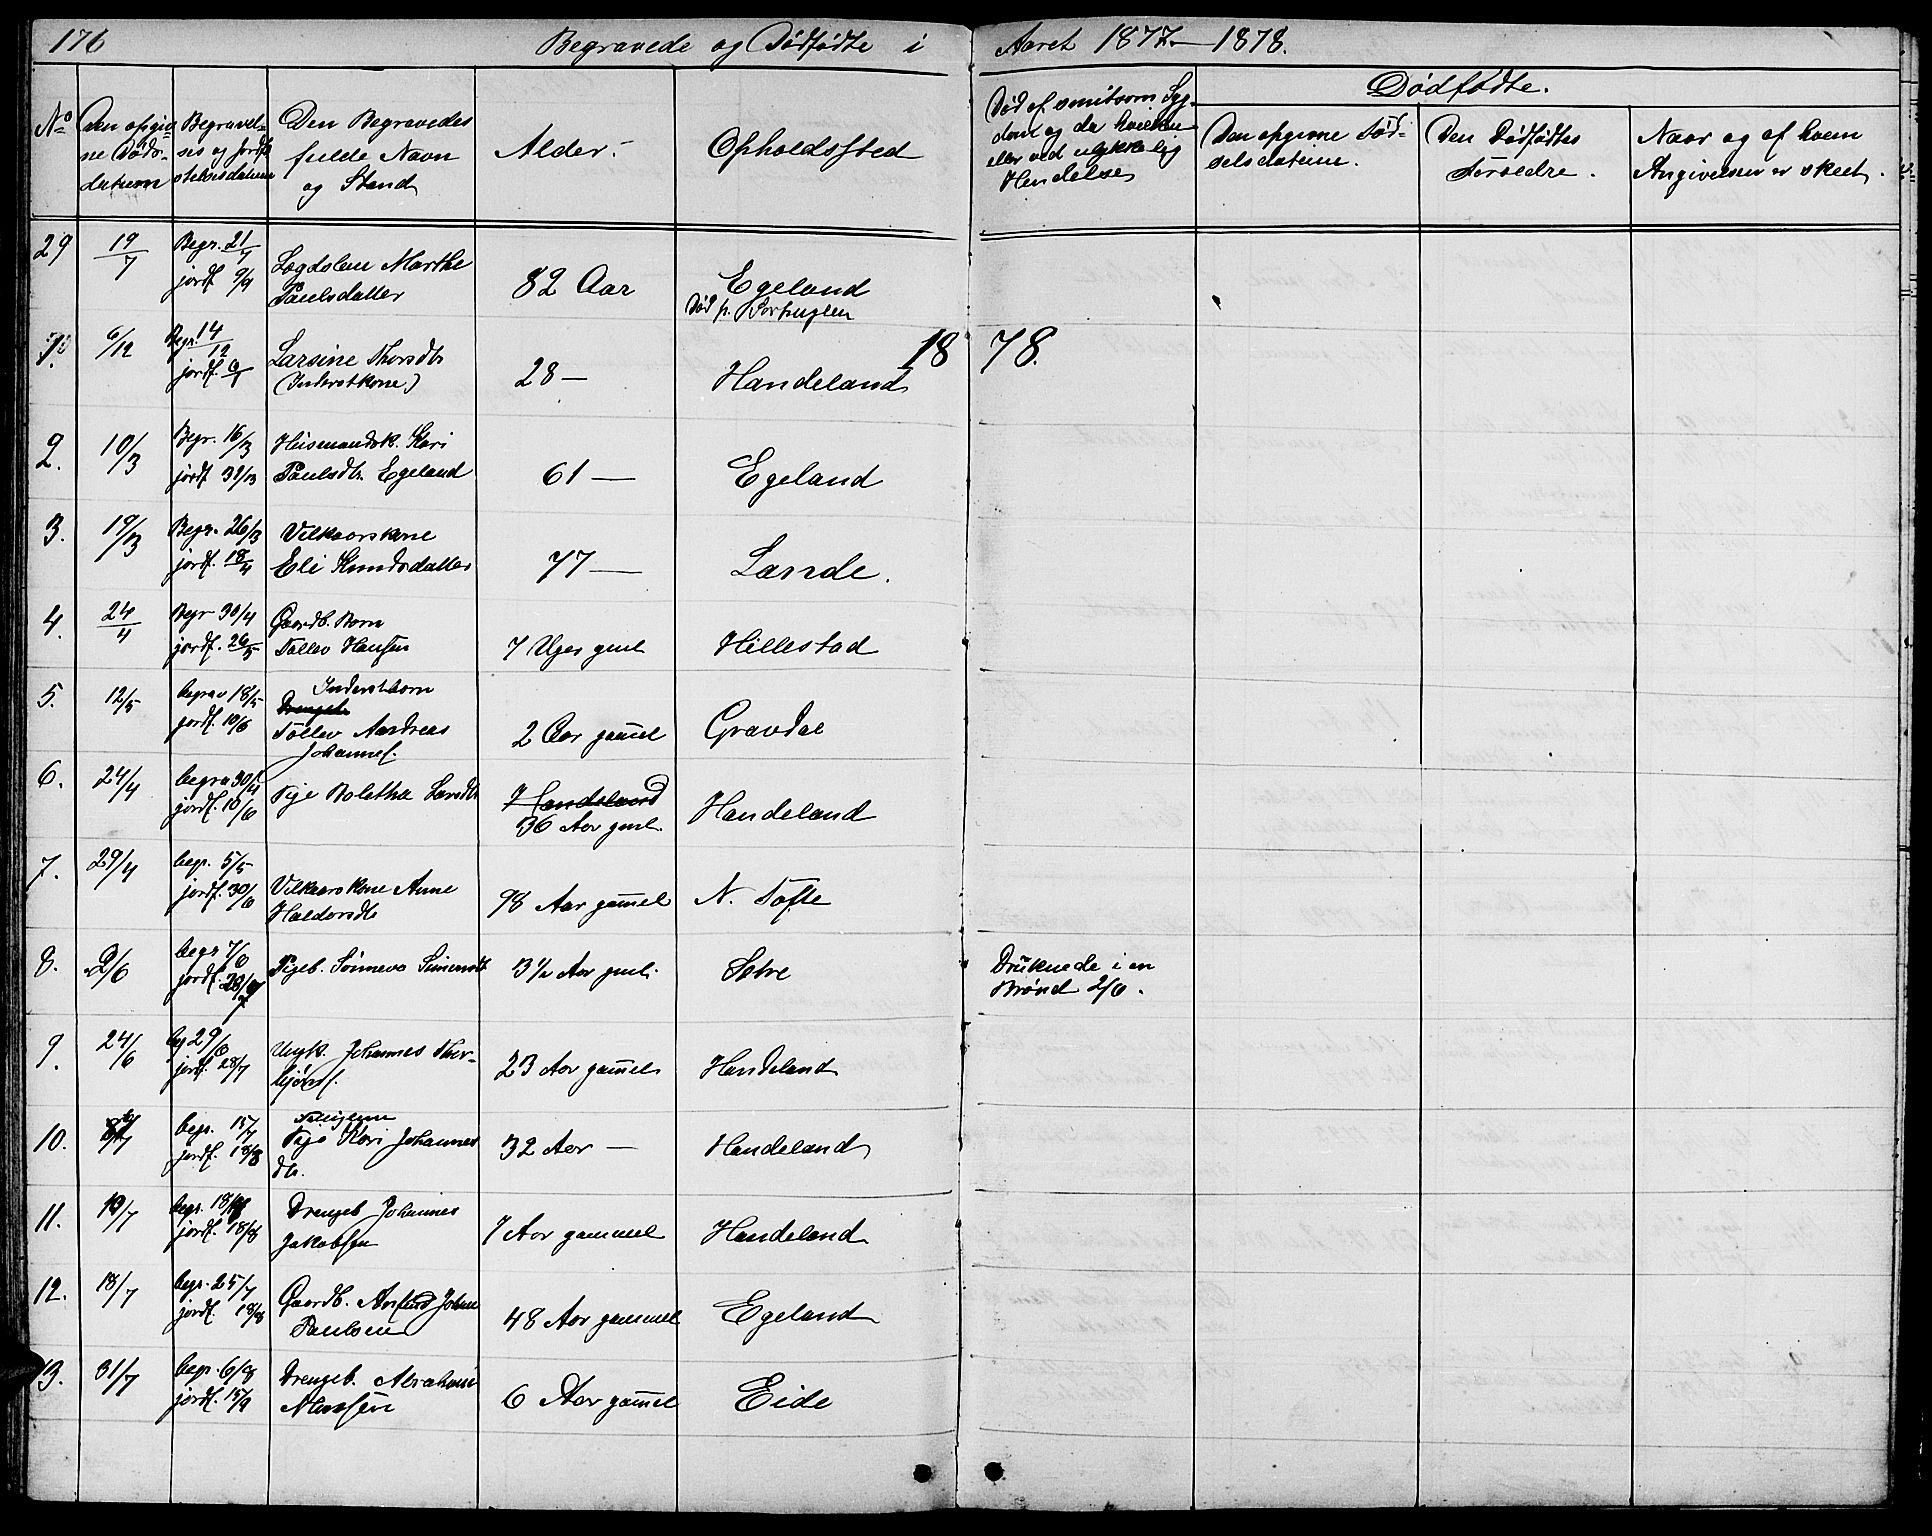 176 Begravede og Dødfødte i Aaret 1877–1878.
No
Den opgivne Døds-datum
Begravelses og Jordfæstelsesdatum
Den Begravedes fulde Navn og Stand
Alder.
Opholdssted
Død af smitsom Sygdom og da hvilken eller ved ulykkelig Hendelse
Dødfødte.
Den opgivne Fødselsdatum.
Den Dødfødtes Forældre.
Naar og af hvem Angivelsen er skeet.
29 19/7 Begr. 21/7 Lægdslem Marthe 82 Aar Egeland
jordf. 9/9 Paulsdatter Død p.
1878.
1. 6/12 Begr. 14/12 Larsine Thorsdtr 28 — Handeland
jordf. (Inderstkone)
2. 10/3 Begr. 16/3 Husmandsk. Kari 61 — Egeland
jordf 31/3 Paulsdtr. Egeland
3. 19/3 Begr. 26/3 Vilkaarskone 77 — Lande.
jordf. 18/4 Eli Knudsdatter
4. 24/4 Begr 30/4 Gaardb. Barn 7 Uger gml Hillestad
jordf. 26/5 Tallev Hansen
5. 12/5 begrav 18/5 Inderstbarn 2 Aar gammel Gravdal
jordf. 10/6 Tollev Andreas
Johannes.
6. 24/4 begra 30/4 Pige Bolethe Larsdtr Handeland
jordf. 10/6 36 Aar gml. Handeland
7. 29/4 begr. 5/5 Vilkaarskone Anne 98 Aar gammel N. Tofte
jordf. 30/6 Haldorsdtr
8. 2/6 begr 7/6 Pigeb. Sønneva Simensdtr 3½ Aar gml. Setre Druknede i en
jordf. 28/7 Brønd 2/6.
9. 24/6 beg 29/6 Ungk. Johannes Thor- 23 Aar gammel Handeland
jordf. 28/7 bjørns.
10. begr. 15/7 Pige Kari Johannes 32 Aar — Handeland
jordf. 18/8 dtr.
11. 10/7 begr. Drengeb Johannes 7 Aar gammel Handeland
jordf. 18/8 Jakobsen
12. 18/7 begr. 25/7 Gaardb. 48 Aar gammel Egeland
jordf. 18/8 Paulsen
13. 31/7 begr. 6/8 Drengeb. Abraham 6 Aar gammel Eide
jordf. 15/9